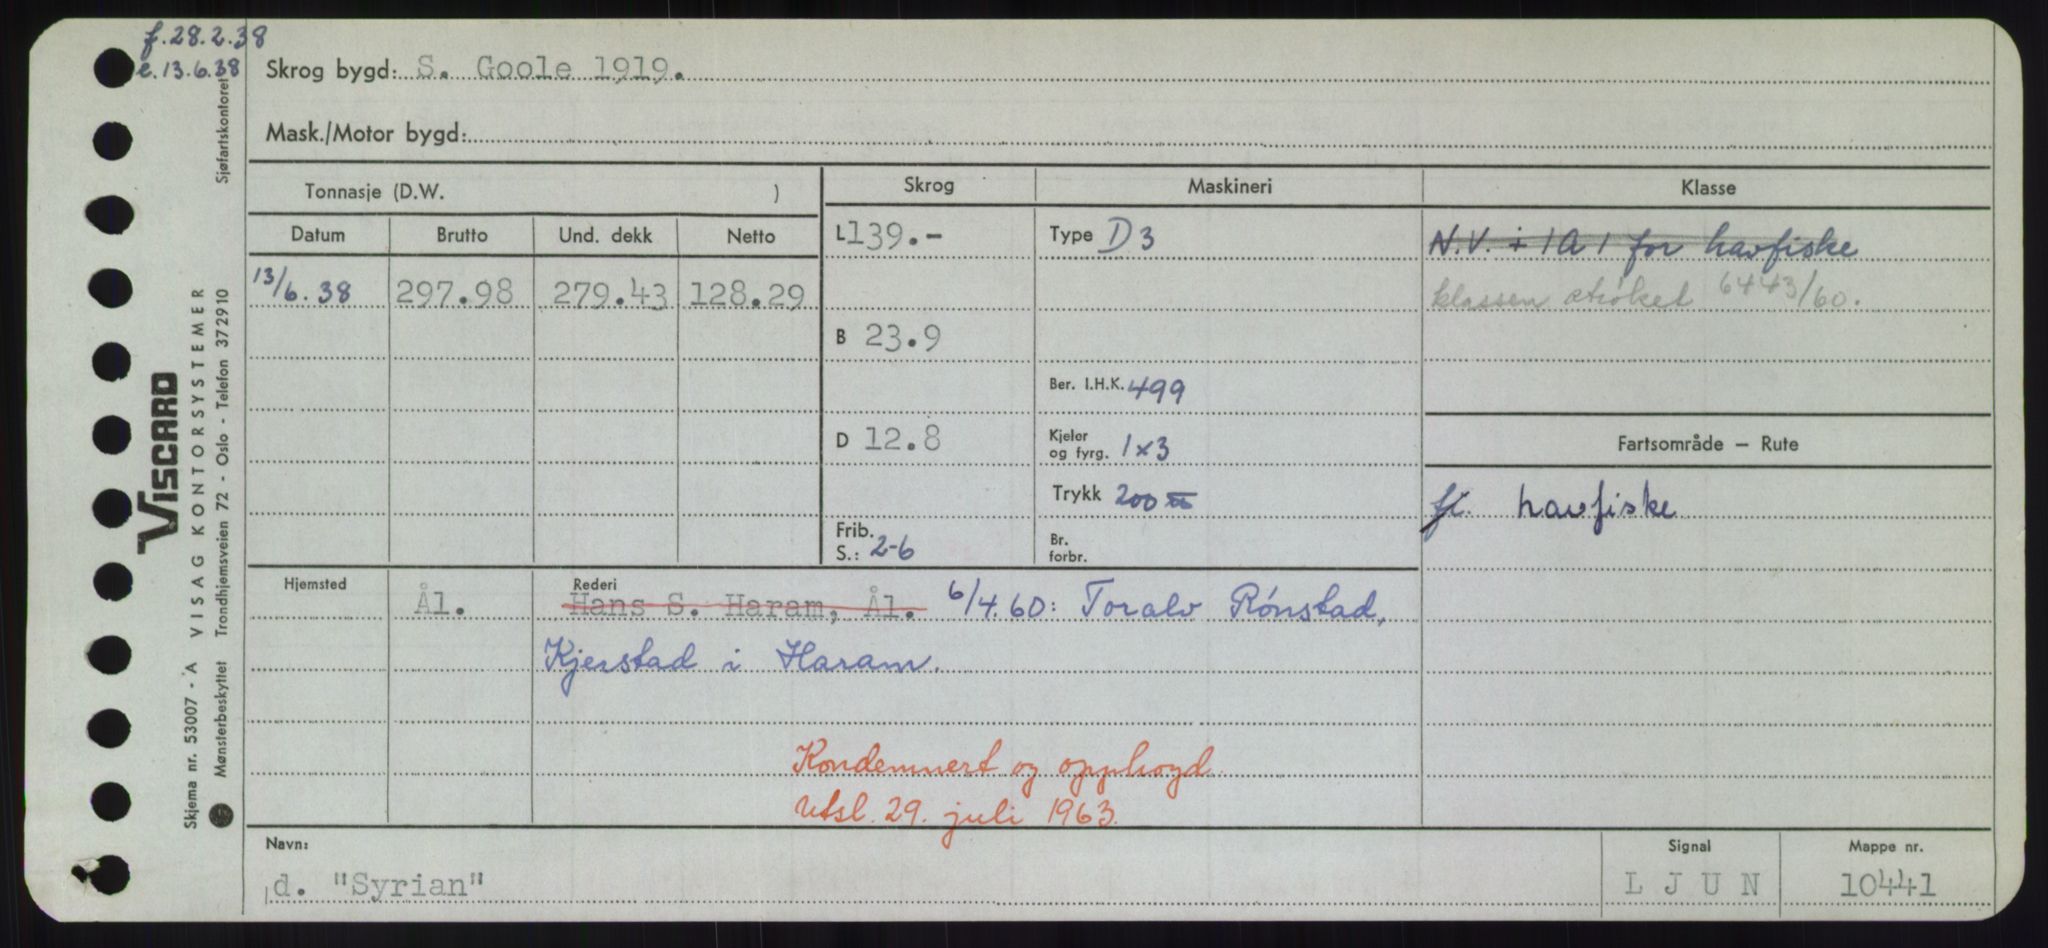 f. 28.2.38
e. 13.6.38
Skrog bygd: S. Goole 1919.
Mask./Motor bygd:
Tonnasje (D.W. )
Skrog
Maskineri
Klasse
Datum
Brutto
Und. dekk
Netto
L 139.-
Type D3
N.V. + 1A1 for havfiske
13/6.38 297.98 279.43 128.29
klassen strøket 6443/60.
B 23.9
Ber. I.H.K. 499
D 12.8
Kjeler og fyrg. 1x3
Fartsområde — Rute
Trykk 200 ℔
fi. havfiske
Frib. S.: 2-6
Br. forbr.
Hjemsted
Ål.
Rederi
Hans S. Haram, Ål. 6/4.60: Toralv Rønstad,
Kjerstad i Haram.
Kondemnert og opphogd
Utsl. 29. juli 1963.
Navn:
d. "Syrian"
Signal
L J U N
Mappe nr.
10441
Sjøfartskontoret
VISCARD
VISAG KONTORSYSTEMER
Trondhjemsveien 72 - Oslo - Telefon 372910
Skjema nr. 53007 - A
Mønsterbeskyttet